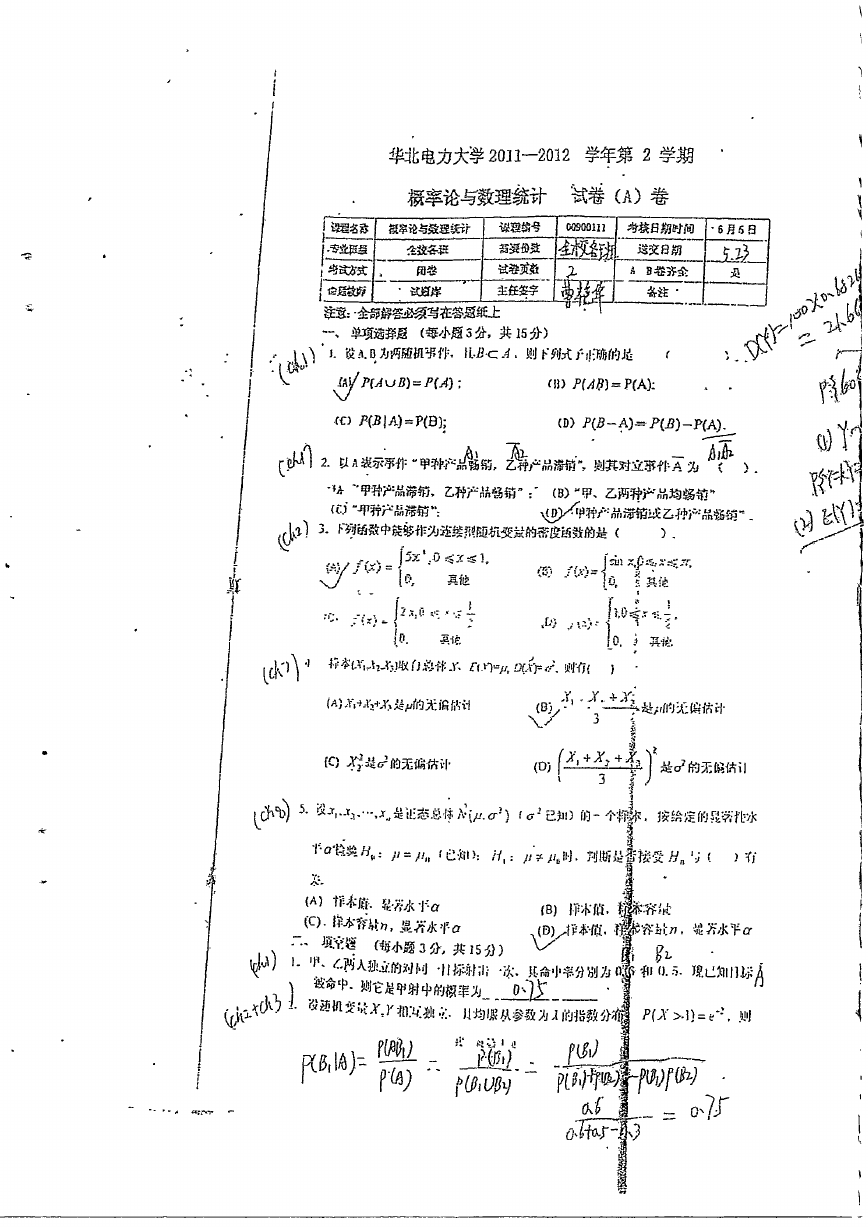 华北电力大学 2011—2012 学年第 2 学期
概率论与数理统计 试卷（A）卷
课程名称 概率论与数理统计 课程编号 00900111 考核日期时间 6月6日
专业班级 全校各班 需要份数 全校各班 送交日期 5.23
考试方式 闭卷 试卷页数 2 A B卷齐全 是
命题教师 试题库 主任签字 备注
注意：全部解答必须写在答题纸上
一、 单项选择题 （每小题3分，共15分）
(ch1) 1. 设A,B为两随机事件，且B⊂A，则下列式子正确的是 ( ).
(A) P(A∪B)=P(A); (B) P(AB)=P(A);
(C) P(B|A)=P(B); (D) P(B−A)=P(B)−P(A).
(ch1) 2. 以A表示事件“甲种产品畅销，乙种产品滞销”，则其对立事件A̅为 ( ).
(A) “甲种产品滞销，乙种产品畅销”; (B) “甲、乙两种产品均畅销”
(C) “甲种产品滞销”; (D) “甲种产品滞销或乙种产品畅销”.
(ch2) 3. 下列函数中能够作为连续型随机变量的密度函数的是 ( ).
(A) f(x)= { 5x⁴,0≤x≤1, 0, 其他 (B) f(x)= { sin x,0≤x≤π, 0, 其他
(C) f(x)= { 2x,0≤x≤1/2 0, 其他 (D) f(x)= { 1,0≤x≤1/2, 0, 其他
(ch7) 4 样本(X₁,X₂,X₃)取自总体X, E(X)=μ, D(X)=σ², 则有( )
(A) X₁+X₂+X₃是μ的无偏估计 (B) (X₁+X₂+X₃)/3 是μ的无偏估计
(C) X₂²是σ²的无偏估计 (D) ((X₁+X₂+X₃)/3)² 是σ²的无偏估计
(ch8) 5. 设x₁,x₂,⋯,xₙ是正态总体N(μ,σ²)（σ²已知）的一个样本，按给定的显著性水
平α检验H₀：μ=μ₀（已知）；H₁：μ≠μ₀时，判断是否接受H₀与 ( ) 有
关.
(A) 样本值，显著水平α (B) 样本值，样本容量
(C). 样本容量n，显著水平α (D) 样本值，样本容量n，显著水平α
二、 填空题 （每小题3分，共15分） B₁ B₂
(ch1) 1. 甲、乙两人独立的对同一目标射击一次，其命中率分别为0.6和0.5. 现已知目标 A
被命中，则它是甲射中的概率为 0.75
(ch2+ch3) 2. 设随机变量X,Y相互独立，且均服从参数为λ的指数分布，P(X>1)=e⁻²，则
P(B₁|A)= P(AB₁)/P(A) = P(B₁)/P(B₁∪B₂) = P(B₁)/(P(B₁)+P(B₂)−P(B₁)P(B₂))
0.6/(0.6+0.5−0.3) = 0.75